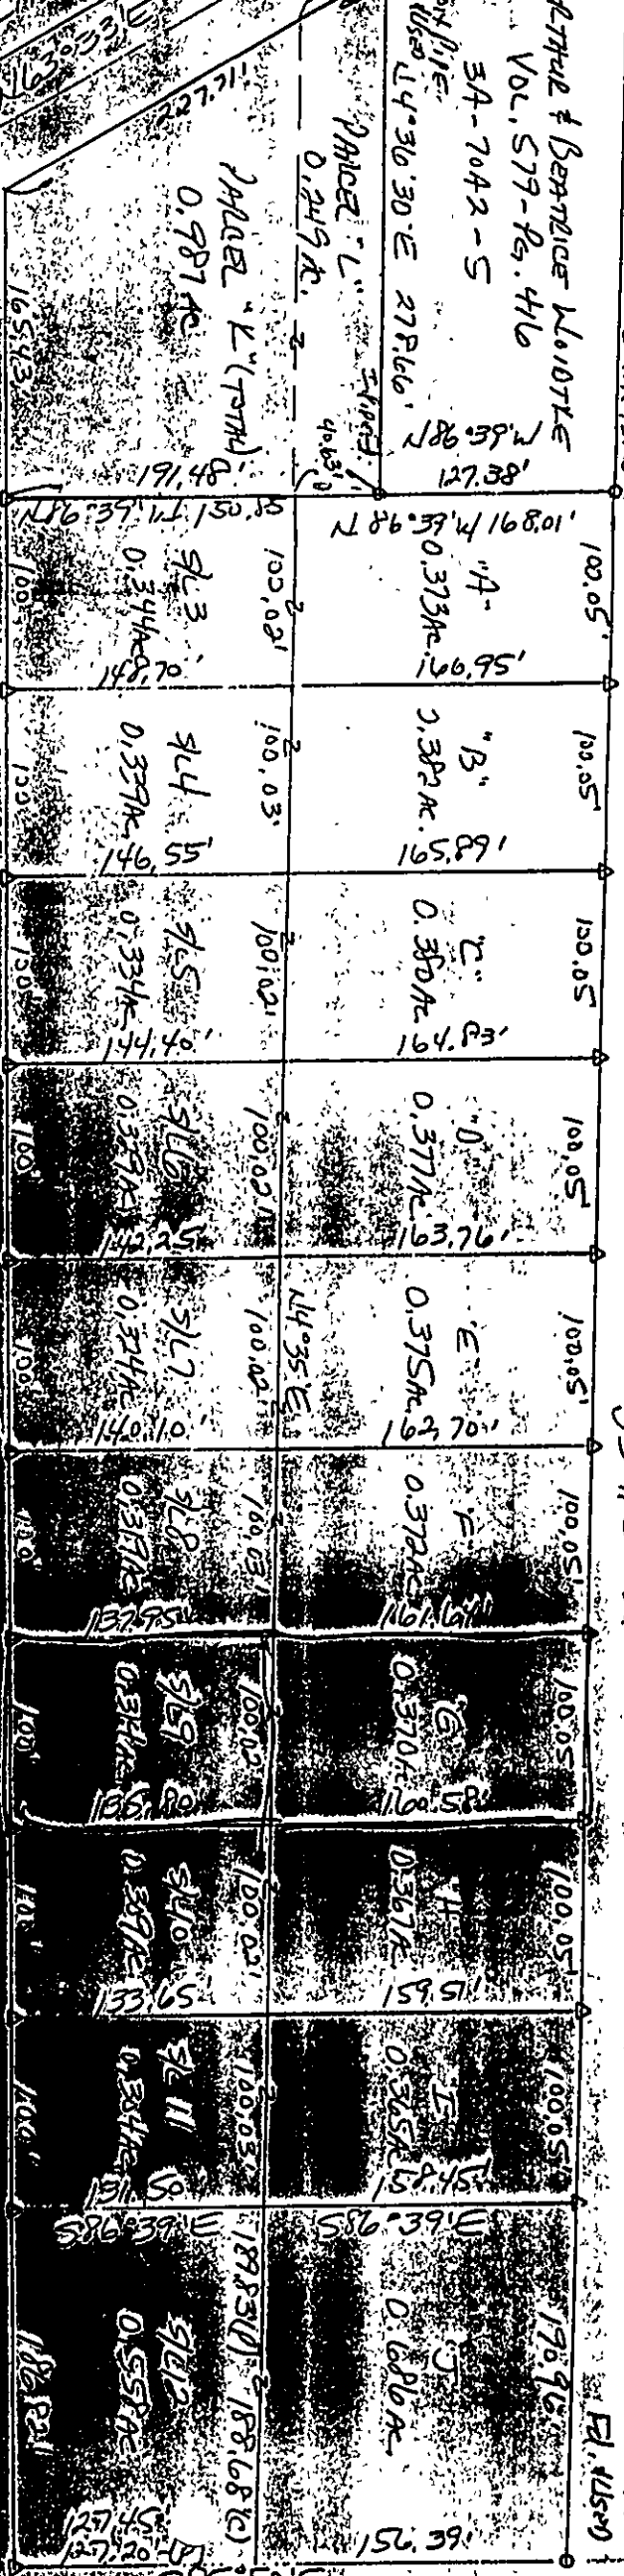 & BEATRICE WOIDTKE
VOL. 579-PG. 416
3A-70A2-5
PIPE
USED
N4°36'30"E 278.66'
N86°39'W
127.38'
PARCEL "L"
0.249 AC.
40.63'
227.71'
PARCEL "K" (TOTAL)
0.987 AC
191.48'
165.43
N86°39'W 150.85
N86°39'W 168.01'
100.05'
"A"
0.373 AC.
166.95'
100.02'
S/L 3
0.344 AC
148.70'
100'
100.05'
"B"
0.382 AC.
165.89'
100.03'
S/L 4
0.339 AC
146.55'
100'
100.05'
"C"
0.380 AC
164.83'
100.02'
S/L 5
0.334 AC
144.40'
100'
100.05'
"D"
0.377 AC.
163.76'
100.02'
S/L 6
0.329 AC
142.25'
100'
100.05'
"E"
0.375 AC
162.70'
N4°35'E
100.02'
S/L 7
0.324 AC
140.10'
100'
100.05'
"F"
0.372 AC
161.64'
100.03'
S/L 8
0.319 AC
137.95'
100'
100.05'
"G"
0.370 AC
160.58'
100.02'
S/L 9
0.314 AC
135.80'
100'
100.05'
"H"
0.367 AC
159.51'
100.02'
S/L 10
0.309 AC
133.65'
100'
100.05'
"I"
0.365 AC
158.45'
100.03'
S/L 11
0.304 AC
131.50'
100'
S86°39'E
S86°39'E
"J"
0.686 AC.
156.39'
189.83(P) 188.68'(C)
S/L 12
0.558 AC
127.45'
127.20'
186.82'